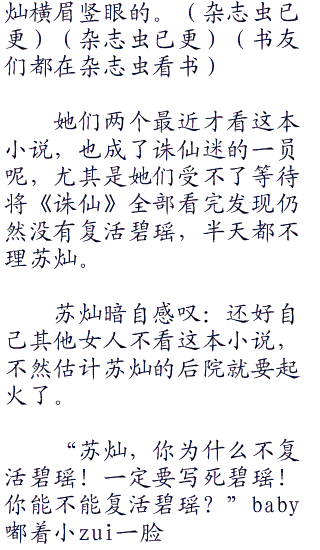 灿横眉竖眼的。（杂志虫已
更）（杂志虫已更）（书友
们都在杂志虫看书）
她们两个最近才看这本
小说，也成了诛仙迷的一员
呢，尤其是她们受不了等待
将《诛仙》全部看完发现仍
然没有复活碧瑶，半天都不
理苏灿。
苏灿暗自感叹：还好自
己其他女人不看这本小说，
不然估计苏灿的后院就要起
火了。
“苏灿，你为什么不复
活碧瑶！一定要写死碧瑶！
你能不能复活碧瑶？”baby
嘟着小zui一脸